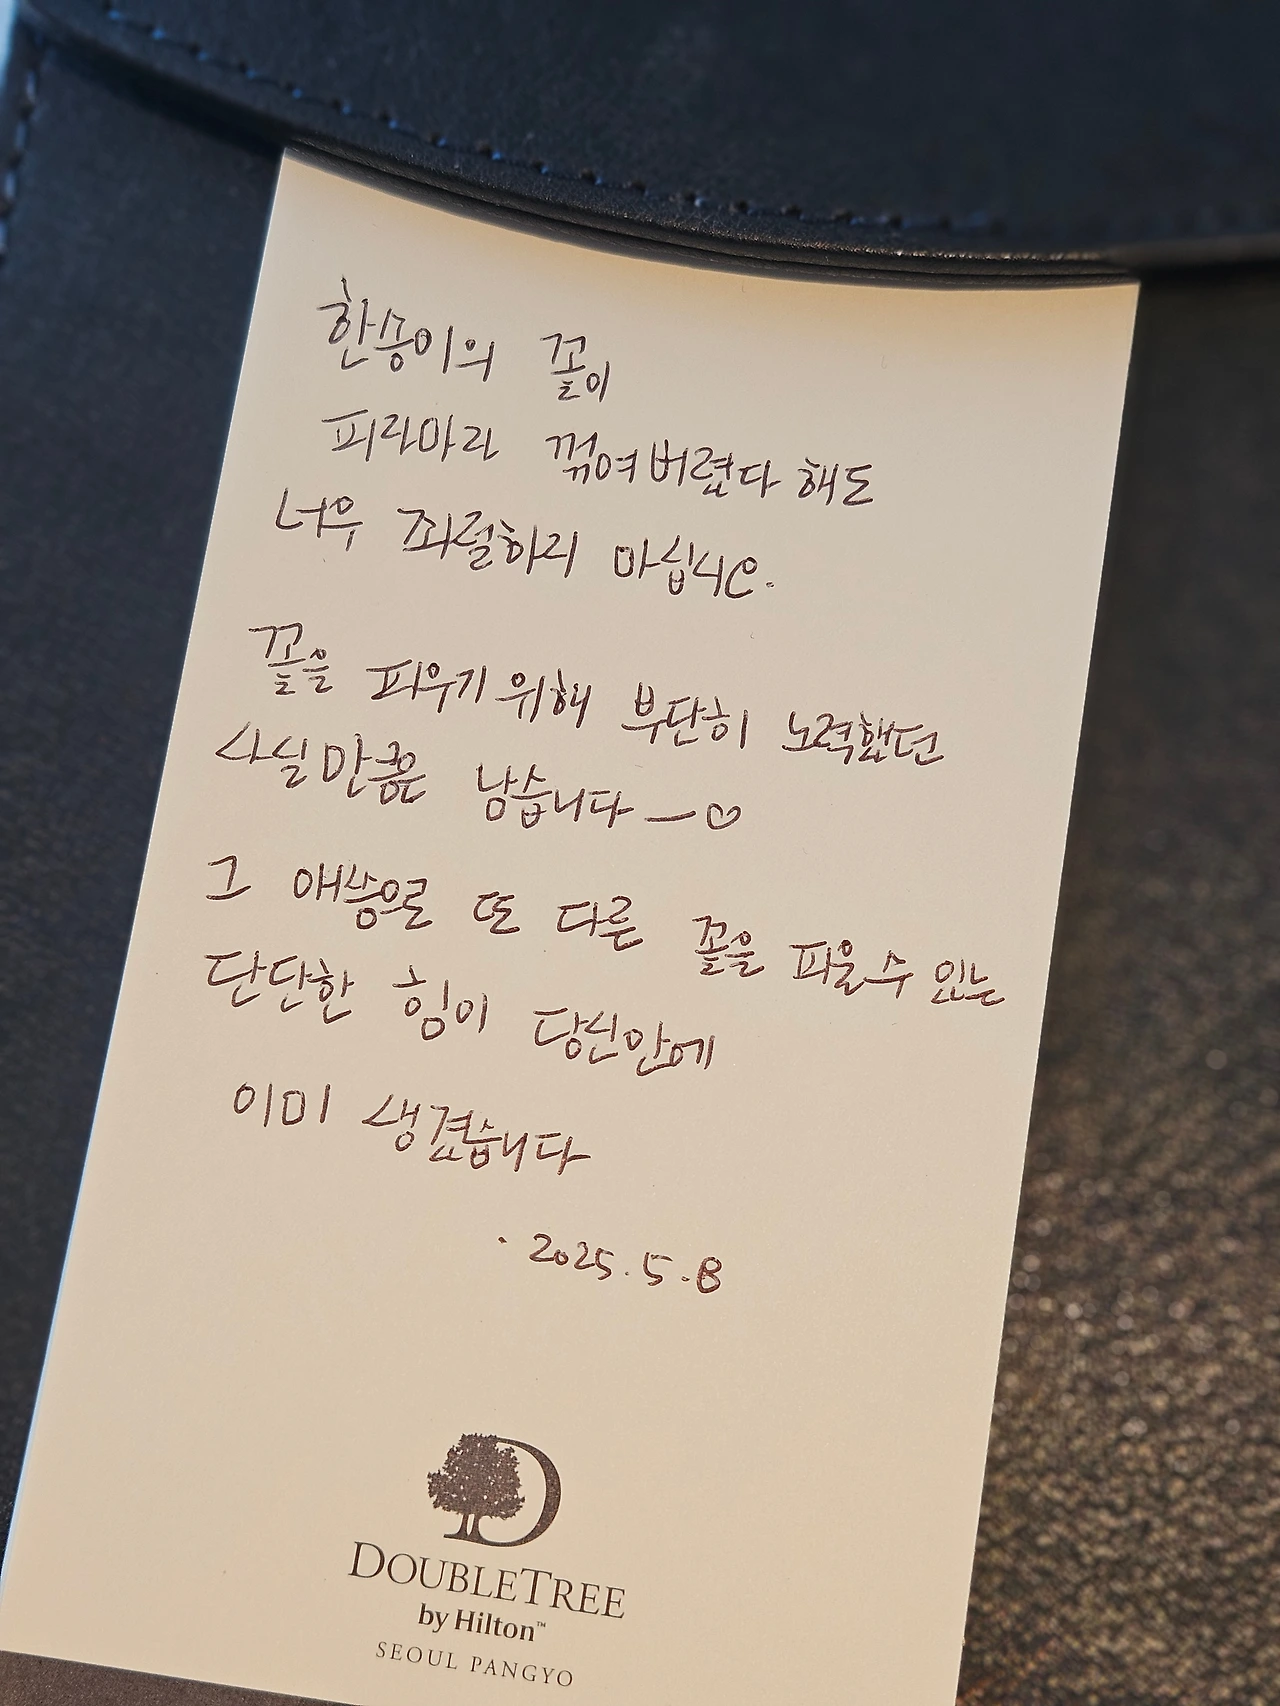 한송이의 꽃이
피라마라 꺾여버렸다 해도
너무 좌절하리 마십시오.
꽃을 피우기 위해 부단히 노력했던
사실만큼은 남습니다 ―♡
그 애씀으로 또 다른 꽃을 피울수 있는
단단한 힘이 당신안에
이미 생겼습니다
· 2025.5.8
D
DOUBLETREE
by Hilton™
SEOUL PANGYO